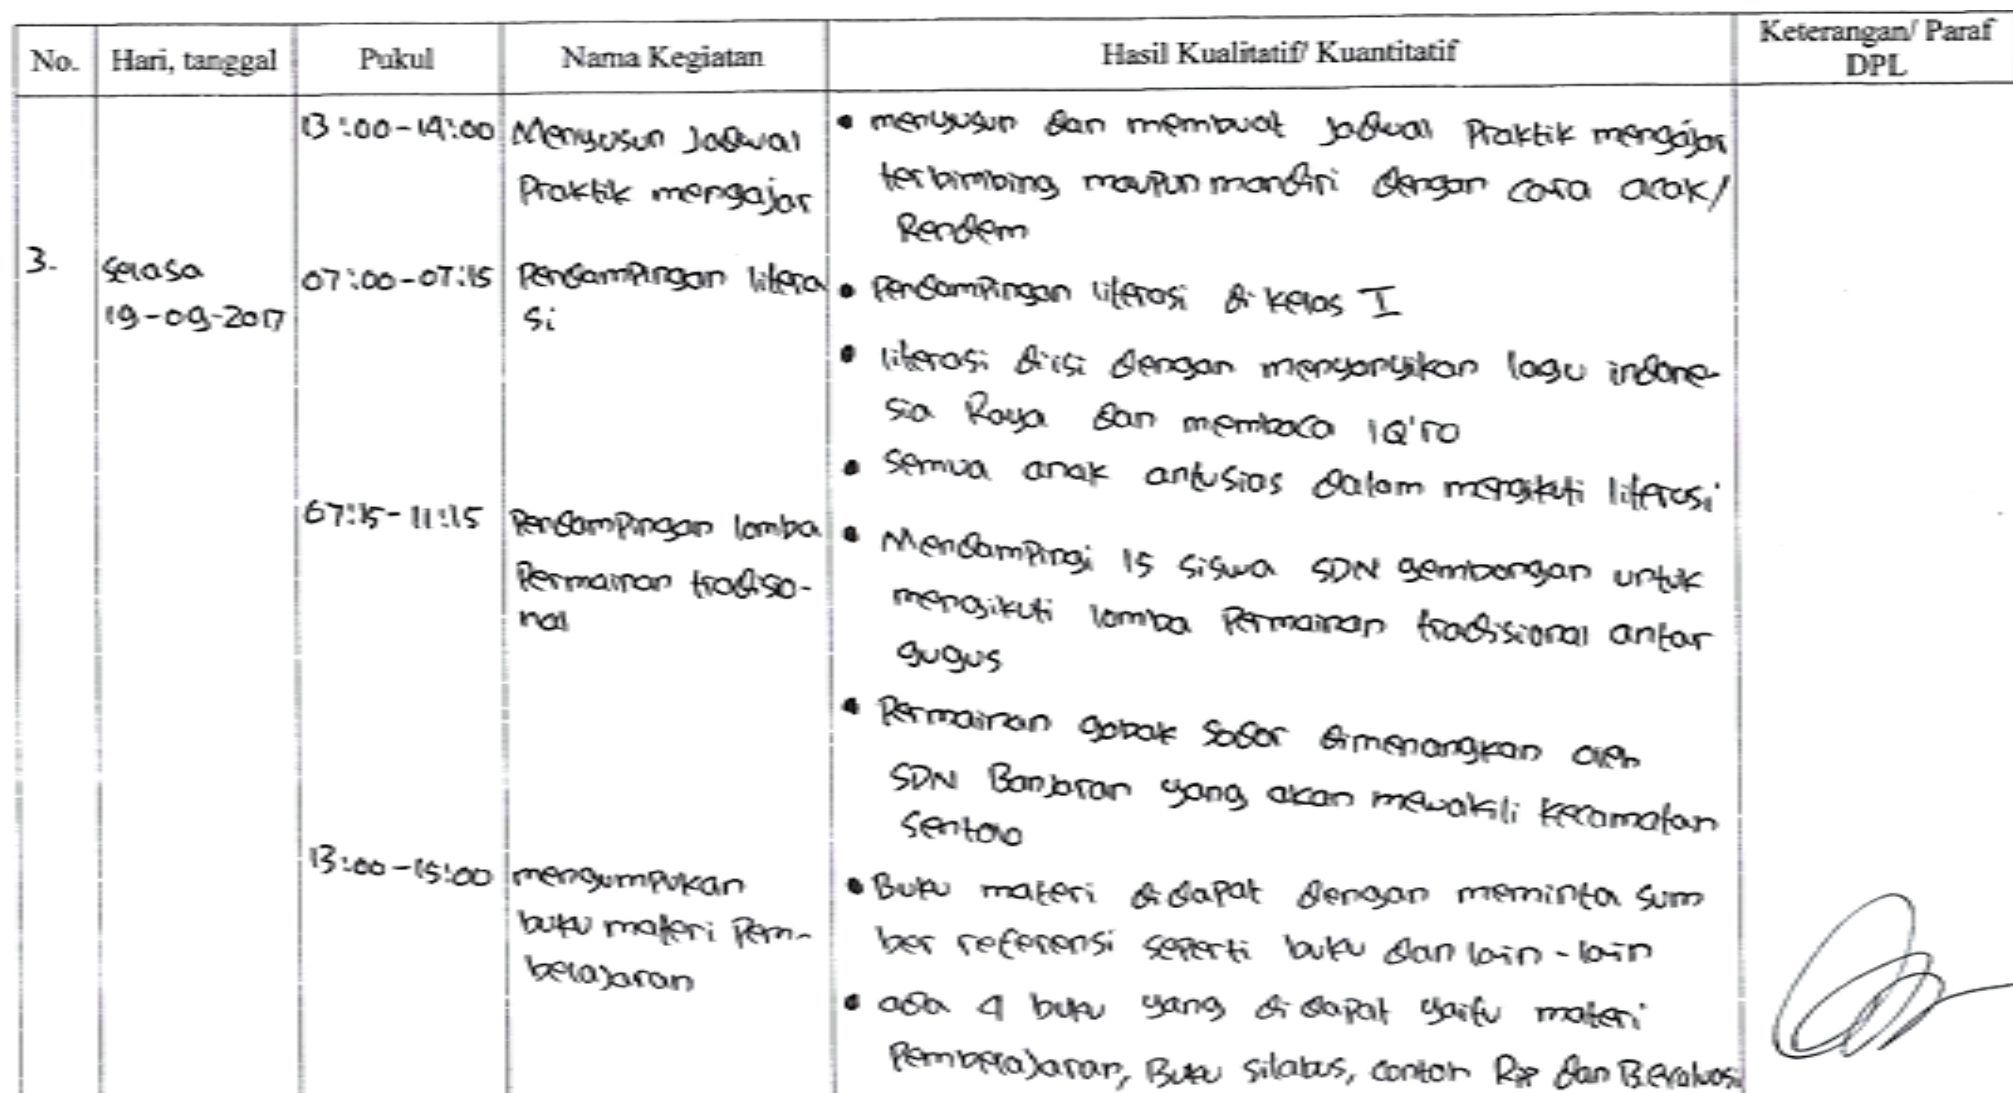 No. Hari, tanggal Pukul Nama Kegiatan Hasil Kualitatif/ Kuantitatif Keterangan/ Paraf DPL
13:00-14:00 Menyusun Jadwal Praktik mengajar
• menyusun dan membuat jadwal Praktik mengajar
terbimbing maupun mandiri dengan cara acak/
Rendem
3. Selasa 19-09-2017
07:00-07:15 Pendampingan litera
si
• Pendampingan literasi di kelas I
• literasi diisi dengan menyanyikan lagu indone-
sia Raya dan membaca IQ'ro
• Semua anak antusias dalam mengikuti literasi
07:15-11:15 Pendampingan lomba
Permainan tradiso-
nal
• Mendampingi 15 siswa SDN gembongan untuk
mengikuti lomba Permainan tradisional antar
gugus
• Permainan gobak Sodor dimenangkan oleh
SDN Banjaran yang akan mewakili kecamatan
Sentolo
13:00-15:00 mengumpukan
buku materi Pem-
belajaran
• Buku materi di dapat dengan meminta sum
ber referensi seperti buku dan lain-lain
• ada 4 buku yang di dapat yaitu materi
Pembelajaran, Buku silabus, contoh RPP dan B.evaluasi